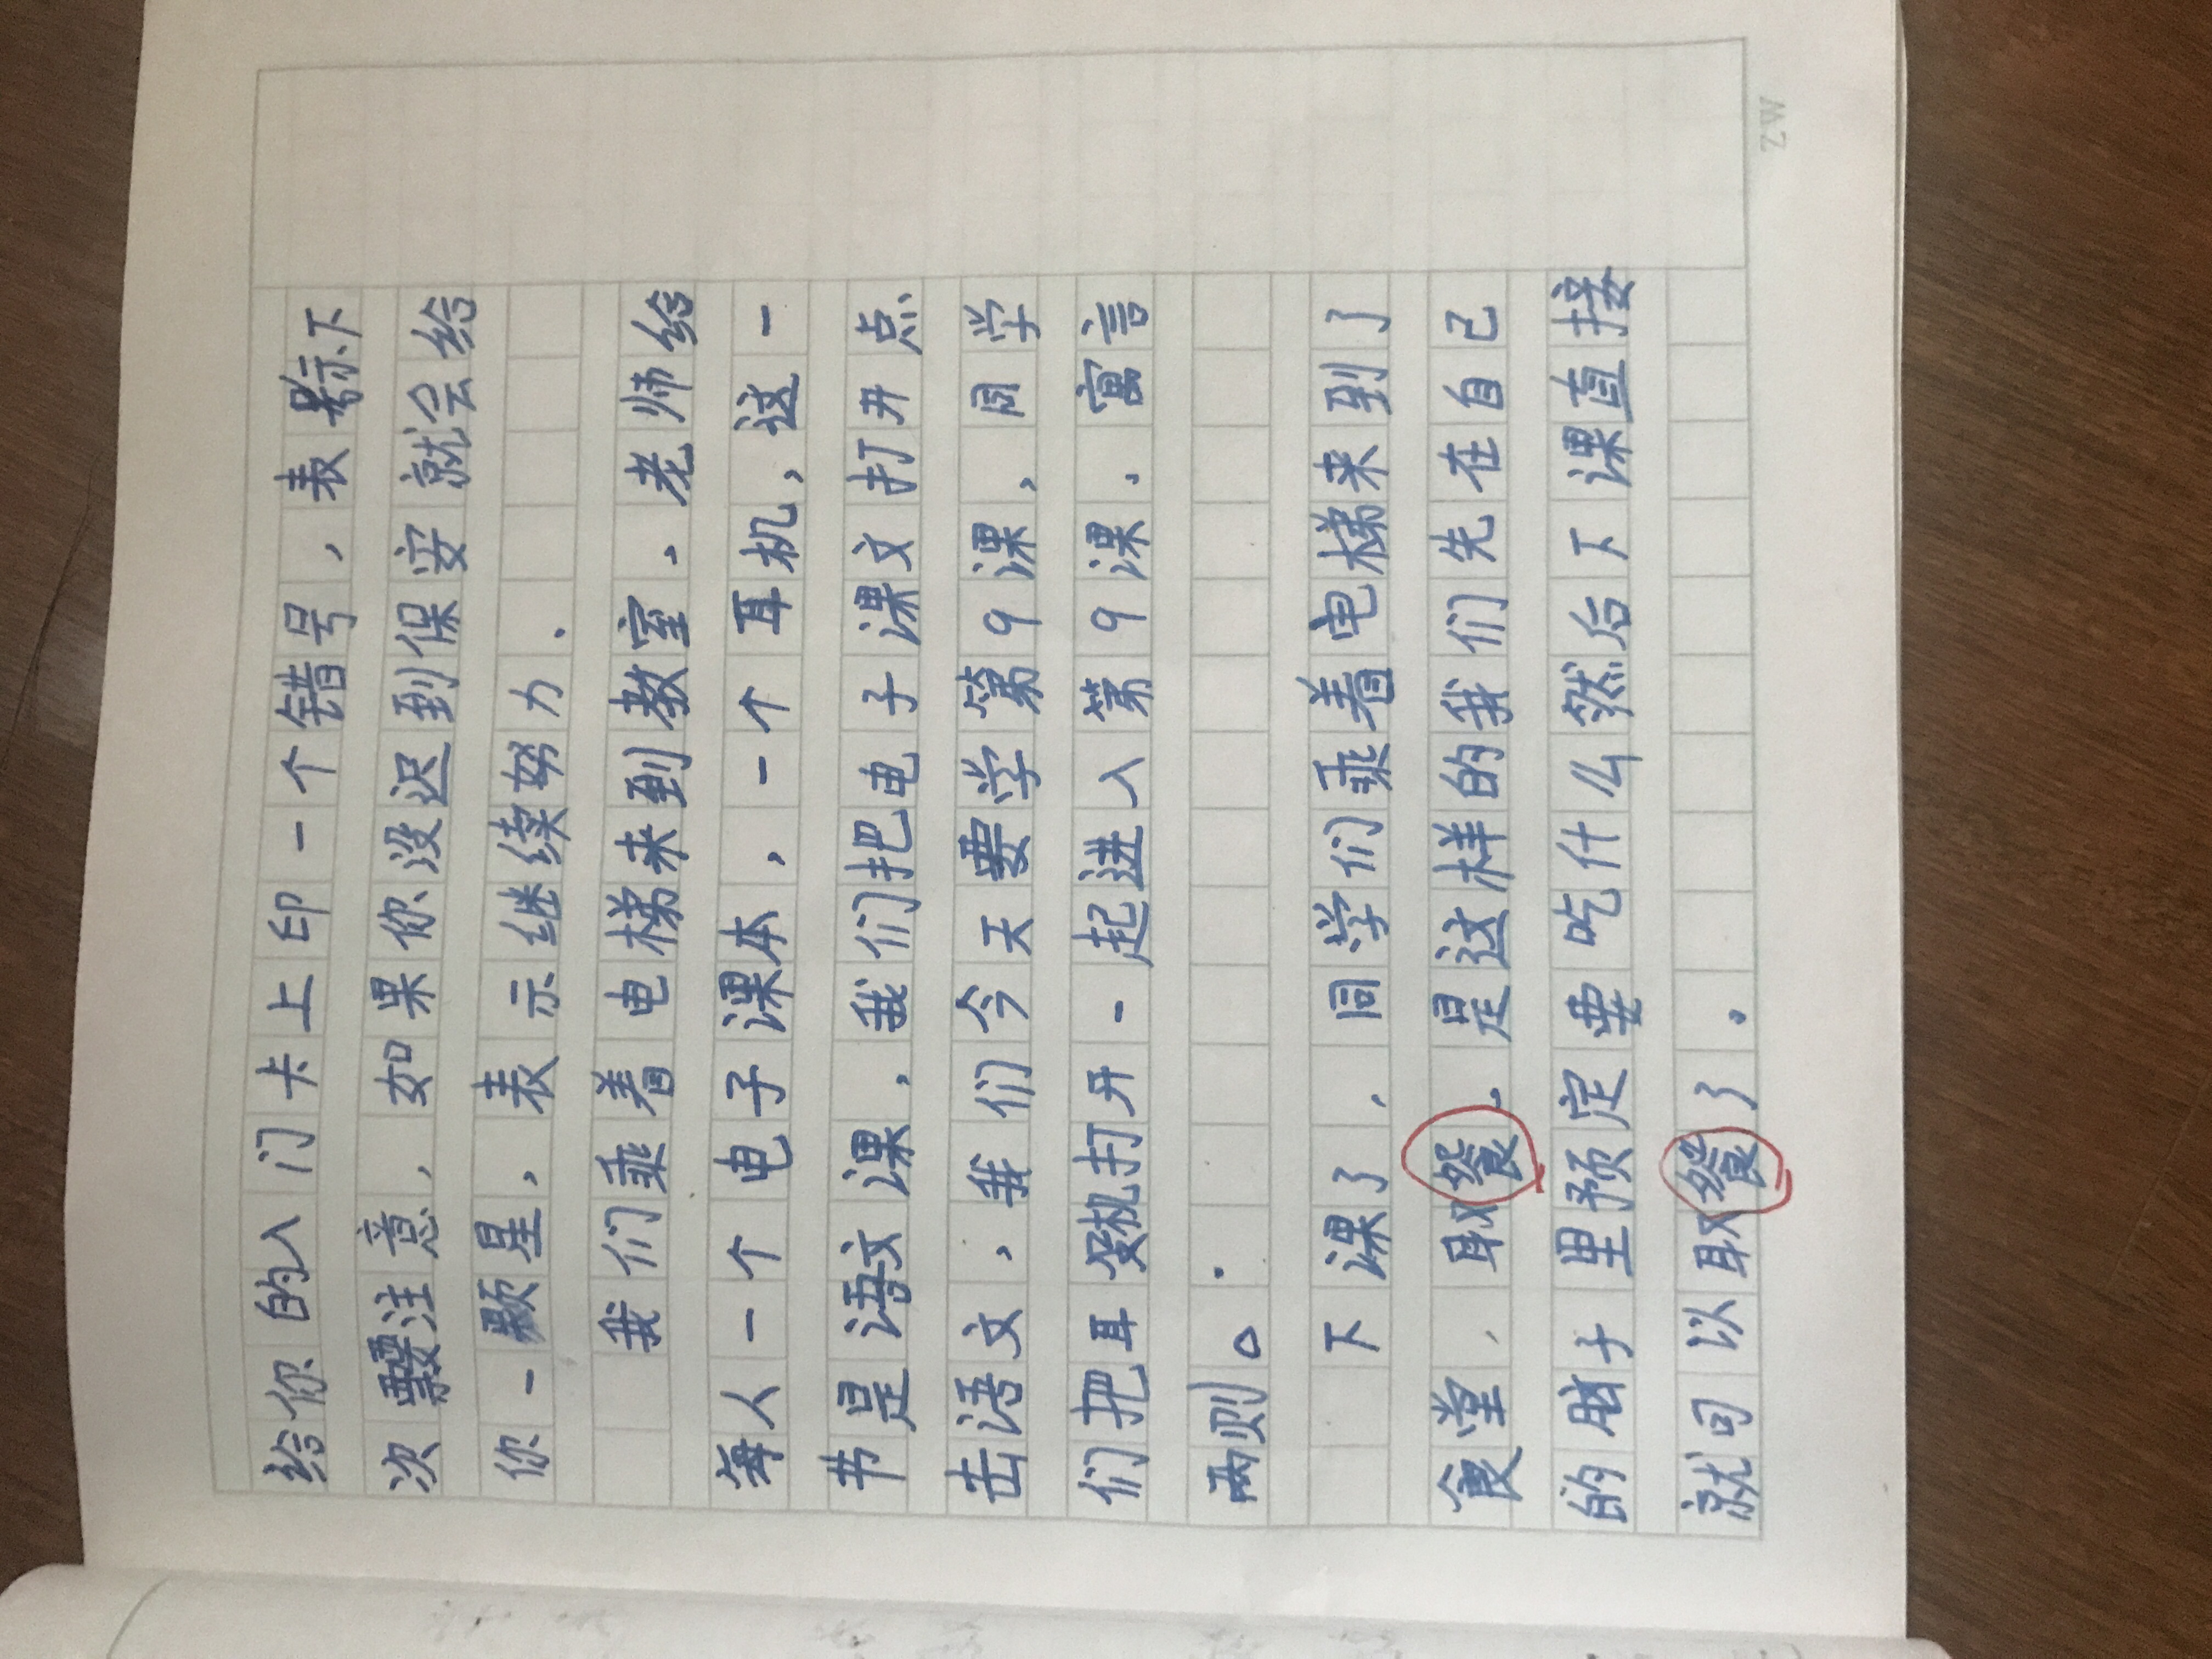 给你的入门卡上印一个错号，表示下
次要注意，如果你没迟到保安就会给
你一颗星，表示继续努力．
我们乘着电梯来到教室．老师给
每人一个电子课本，一个耳机，这一
节是语文课，我们把电子课文打开点
击语文，我们今天要学第9课，同学
们把耳机打开一起进入第9课．寓言
两则。．
下课了，同学们乘着电梯来到了
食堂，取餐．是这样的我们先在自己
的脑子里预定要吃什么然后下课直接
就可以取餐了．
ZW